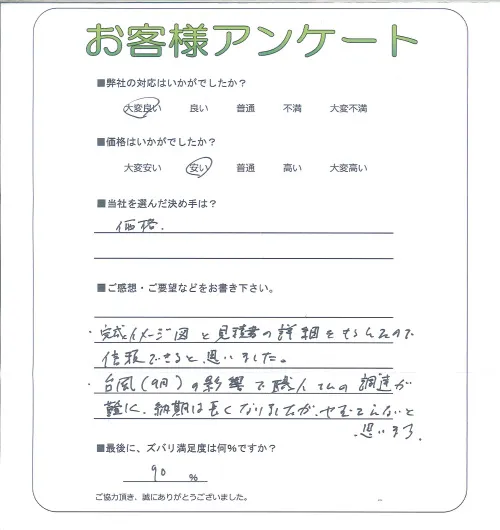 お客様アンケート
■弊社の対応はいかがでしたか？
大変良い 良い 普通 不満 大変不満
■価格はいかがでしたか？
大変安い 安い 普通 高い 大変高い
■当社を選んだ決め手は？
価格.
■ご感想・ご要望などをお書き下さい。
・完成イメージ図と見積書の詳細をもらえたので
信頼できると思いました。
・台風(9月)の影響で職人さんの調達が
難に、納期は長くなりましたが、やむをえないと
思います.
■最後に、ズバリ満足度は何%ですか？
90 %
ご協力頂き、誠にありがとうございました。